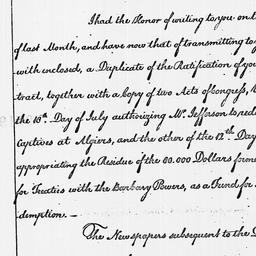 I had the Honor of writing to you on t
of last Month, and have now that of transmitting to y
with enclosed, a Duplicate of the Ratification of you
tract, together with a Copy of two Acts of Congress,
the 18th. Day of July authorizing Mr. Jefferson to red
Captives at Algiers, and the other of the 12th Day
appropriating the Residue of the 80.000 Dollars forme
for Treaties with the Barbary Powers, as a Fund for
demption. —
The Newspapers subsequent to the